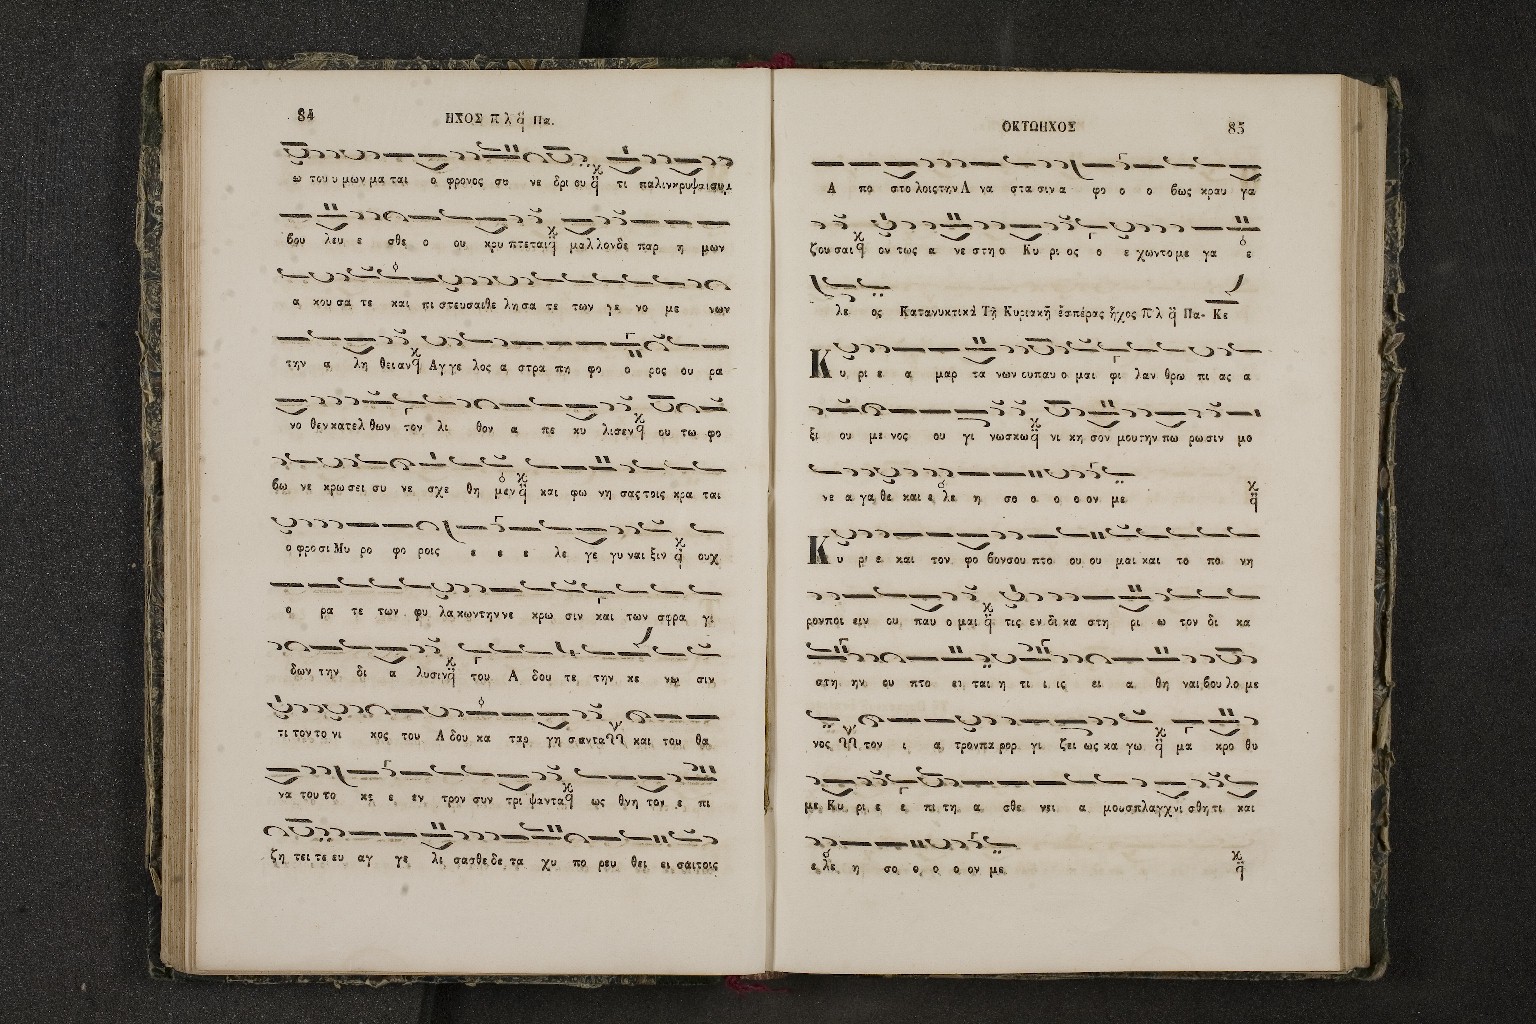 84
ΗΧΟΣ π λ ᾃ Πα.
ω του υ μων μα ται ο φρονος συ νε δρι ου τι παλινκρυψαισυμ
βου λευ ε σθε ο ου κρυ πτεται μαλλονδε παρ η μων
α κου σα τε και πι στευσαιθε λη σα τε των γε νο με νων
την α λη θειαν Αγ γε λος α στρα πη φο ο ρος ου ρα
νο θεν κατελ θων τον λι θον α πε κυ λισεν ου τω φο
βω νε κρω σει συ νε σχε θη μεν και φω νη σας τοις κρα ται
ο φρο σι Μυ ρο φο ροις ε ε ε λε γε γυ ναι ξιν ουχ
ο ρα τε των φυ λα κωντην νε κρω σιν και των σφρα γι
δων την δι α λυσιν του Α δου τε την κε νω σιν
τι τον το νι κος του Α δου κα ταρ γη σ αντα και του θα
να του το κε ε εν τρον συν τρι ψαντα ως θνη τον ε πι
ζη τει τε ευ αγ γε λι σασθε δε τα χυ πο ρευ θει ει σαιτοις
ΟΚΤΩΗΧΟΣ 85
Α πο στο λοιςτην Α να στα σιν α φο ο ο βως κραυ γα
ζου σαι ον τως α νε στη ο Κυ ρι ος ο ε χωντο με γα ε
λε ος Κατανυκτικὰ Τῇ Κυριακῇ ἑσπέρας ἦχος π λ ᾃ Πα- Κε
Κ υ ρι ε α μαρ τα νων ουπαυ ο μαι φι λαν θρω πι ας α
ξι ου με νος ου γι νωσκω νι κη σον μουτην πω ρωσιν μο
νε α γα θε και ε λε η σο ο ο ο ον με
Κ υ ρι ε και τον φο βονσου πτο ου ου μαι και το πο νη
ρονποι ειν ου παυ ο μαι τις εν δι κα στη ρι ω τον δι κα
στη ην ου πτο ει ται η τι ι ις ει α θη ναι βου λο με
νος τον ι α τρονπα ρορ γι ζει ως κα γω μα κρο θυ
με Κυ ρι ε ε πι τη α σθε νει α μουσπλαγχνι σθητι και
ε λε η σο ο ο ο ον με